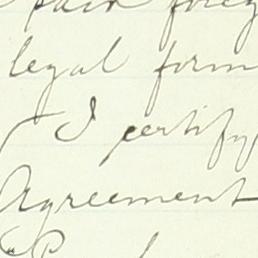 paid
legal form
I certify
Agreement